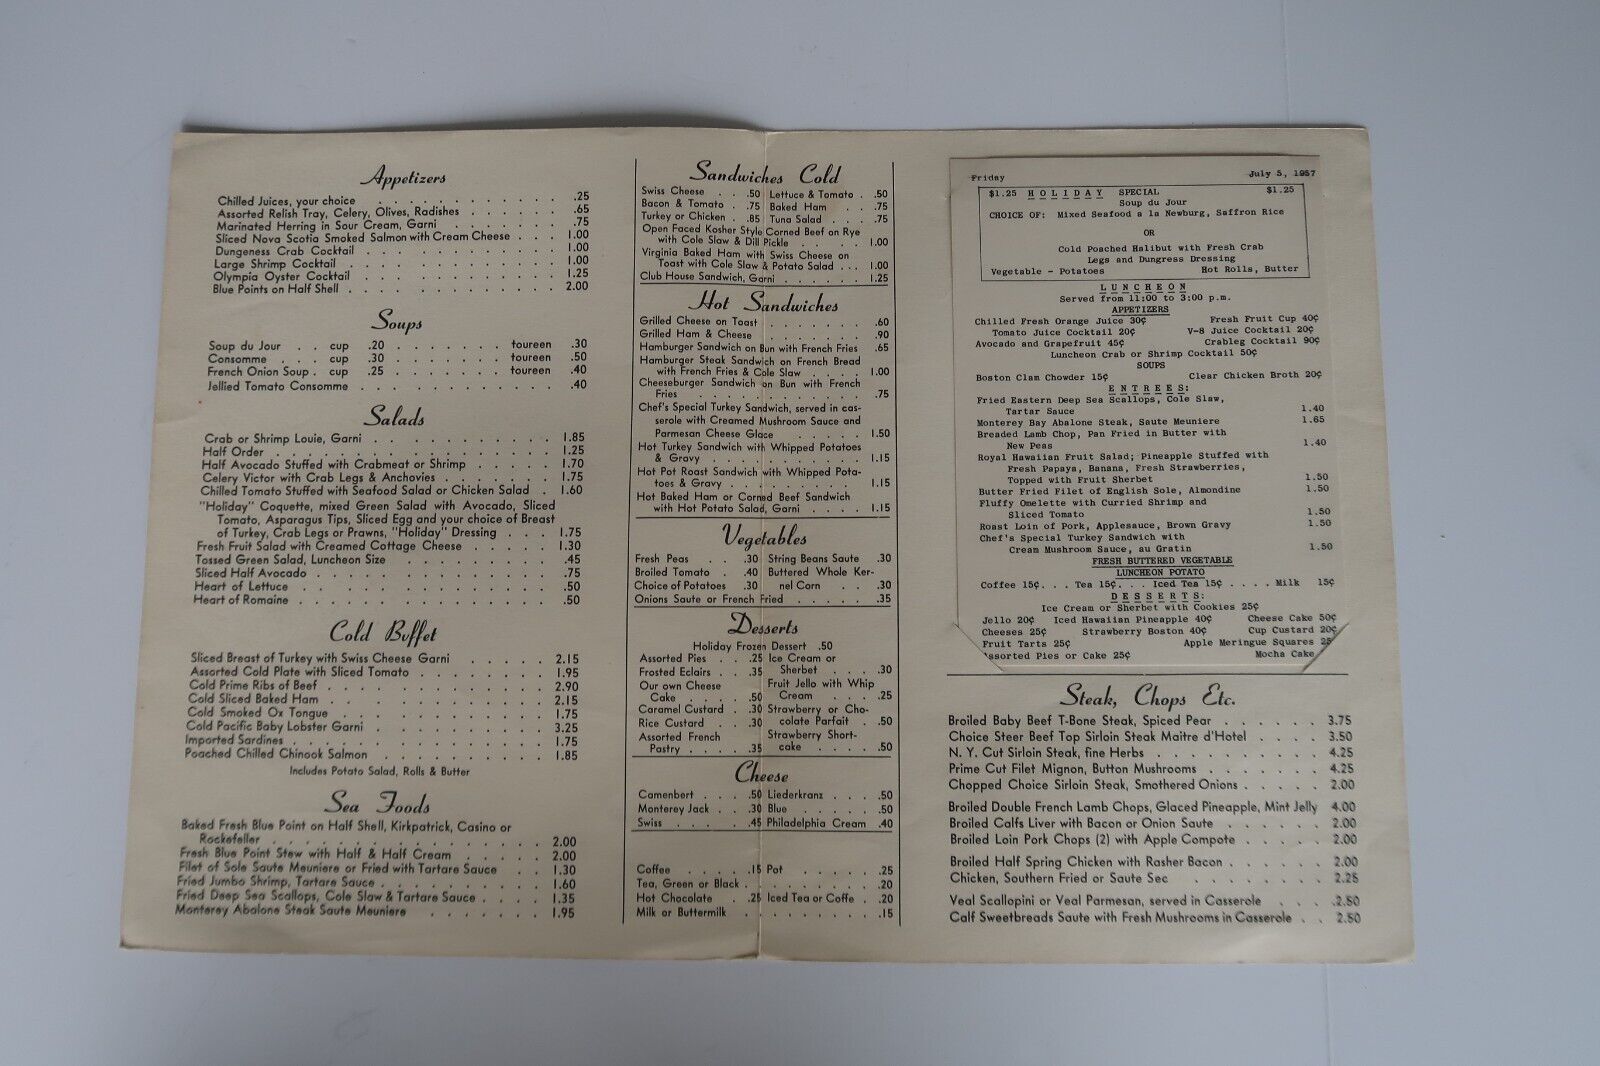 Appetizers
Chilled Juices, your choice . . . . . . . . . . . . .25
Assorted Relish Tray, Celery, Olives, Radishes . . . . . . .65
Marinated Herring in Sour Cream, Garni . . . . . . . .75
Sliced Nova Scotia Smoked Salmon with Cream Cheese . . . 1.00
Dungeness Crab Cocktail . . . . . . . . . . . . 1.00
Large Shrimp Cocktail . . . . . . . . . . . . 1.00
Olympia Oyster Cocktail . . . . . . . . . . . 1.25
Blue Points on Half Shell . . . . . . . . . . . . 2.00
Soups
Soup du Jour . . cup .20 . . . . . . . toureen .30
Consomme . . . cup .30 . . . . . . . toureen .50
French Onion Soup . cup .25 . . . . . . . toureen .40
Jellied Tomato Consomme . . . . . . . . . . . .40
Salads
Crab or Shrimp Louie, Garni . . . . . . . . . . 1.85
Half Order . . . . . . . . . . . . . . . 1.25
Half Avocado Stuffed with Crabmeat or Shrimp . . . . . 1.70
Celery Victor with Crab Legs & Anchovies . . . . . . . 1.75
Chilled Tomato Stuffed with Seafood Salad or Chicken Salad . 1.60
"Holiday" Coquette, mixed Green Salad with Avocado, Sliced
Tomato, Asparagus Tips, Sliced Egg and your choice of Breast
of Turkey, Crab Legs or Prawns, "Holiday" Dressing . . . 1.75
Fresh Fruit Salad with Creamed Cottage Cheese . . . . . 1.30
Tossed Green Salad, Luncheon Size . . . . . . . . . .45
Sliced Half Avocado . . . . . . . . . . . . . .75
Heart of Lettuce . . . . . . . . . . . . . . .50
Heart of Romaine . . . . . . . . . . . . . . .50
Cold Buffet
Sliced Breast of Turkey with Swiss Cheese Garni . . . . . 2.15
Assorted Cold Plate with Sliced Tomato . . . . . . . . 1.95
Cold Prime Ribs of Beef . . . . . . . . . . . . . 2.90
Cold Sliced Baked Ham . . . . . . . . . . . . . 2.15
Cold Smoked Ox Tongue . . . . . . . . . . . . 1.75
Cold Pacific Baby Lobster Garni . . . . . . . . . . 3.25
Imported Sardines . . . . . . . . . . . . . . 1.75
Poached Chilled Chinook Salmon . . . . . . . . . . 1.85
Includes Potato Salad, Rolls & Butter
Sea Foods
Baked Fresh Blue Point on Half Shell, Kirkpatrick, Casino or
Rockefeller . . . . . . . . . . . . . . . 2.00
Fresh Blue Point Stew with Half & Half Cream . . . . . 2.00
Filet of Sole Saute Meuniere or Fried with Tartare Sauce . . 1.30
Fried Jumbo Shrimp, Tartare Sauce . . . . . . . . . 1.60
Fried Deep Sea Scallops, Cole Slaw & Tartare Sauce . . . . 1.35
Monterey Abalone Steak Saute Meuniere . . . . . . . 1.95
Sandwiches Cold
Swiss Cheese . . .50 Lettuce & Tomato . .50
Bacon & Tomato . .75 Baked Ham . . .75
Turkey or Chicken . .85 Tuna Salad . . . .75
Open Faced Kosher Style Corned Beef on Rye
with Cole Slaw & Dill Pickle . . . . . 1.00
Virginia Baked Ham with Swiss Cheese on
Toast with Cole Slaw & Potato Salad . . . 1.00
Club House Sandwich, Garni . . . . . . 1.25
Hot Sandwiches
Grilled Cheese on Toast . . . . . . . .60
Grilled Ham & Cheese . . . . . . . . .90
Hamburger Sandwich on Bun with French Fries .65
Hamburger Steak Sandwich on French Bread
with French Fries & Cole Slaw . . . . 1.00
Cheeseburger Sandwich on Bun with French
Fries . . . . . . . . . . . . .75
Chef's Special Turkey Sandwich, served in cas-
serole with Creamed Mushroom Sauce and
Parmesan Cheese Glace . . . . . . 1.50
Hot Turkey Sandwich with Whipped Potatoes
& Gravy . . . . . . . . . . . 1.15
Hot Pot Roast Sandwich with Whipped Pota-
toes & Gravy . . . . . . . . . . 1.15
Hot Baked Ham or Corned Beef Sandwich
with Hot Potato Salad, Garni . . . . 1.15
Vegetables
Fresh Peas . . .30 String Beans Saute .30
Broiled Tomato . .40 Buttered Whole Ker-
Choice of Potatoes .30 nel Corn . . .30
Onions Saute or French Fried . . . . . .35
Desserts
Holiday Frozen Dessert .50
Assorted Pies . . .25 Ice Cream or
Frosted Eclairs . . .35 Sherbet . . . . .30
Our own Cheese Fruit Jello with Whip
Cake . . . . .50 Cream . . . . .25
Caramel Custard . .30 Strawberry or Cho-
Rice Custard . . .30 colate Parfait . .50
Assorted French Strawberry Short-
Pastry . . . . .35 cake . . . . .50
Cheese
Camenbert . . . .50 Liederkranz . . . .50
Monterey Jack . . .30 Blue . . . . .50
Swiss . . . . .45 Philadelphia Cream .40
Coffee . . . . . .15 Pot . . . . . .25
Tea, Green or Black . . . . . . . . .20
Hot Chocolate . .25 Iced Tea or Coffe . .20
Milk or Buttermilk . . . . . . . . . .15
Friday July 5, 1957
$1.25 HOLIDAY SPECIAL $1.25
Soup du Jour
CHOICE OF: Mixed Seafood a la Newburg, Saffron Rice
OR
Cold Poached Halibut with Fresh Crab
Legs and Dungress Dressing
Vegetable - Potatoes Hot Rolls, Butter
LUNCHEON
Served from 11:00 to 3:00 p.m.
APPETIZERS
Chilled Fresh Orange Juice 30¢ Fresh Fruit Cup 40¢
Tomato Juice Cocktail 20¢ V-8 Juice Cocktail 20¢
Avocado and Grapefruit 45¢ Crableg Cocktail 90¢
Luncheon Crab or Shrimp Cocktail 50¢
SOUPS
Boston Clam Chowder 15¢ Clear Chicken Broth 20¢
ENTREES:
Fried Eastern Deep Sea Scallops, Cole Slaw,
Tartar Sauce 1.40
Monterey Bay Abalone Steak, Saute Meuniere 1.65
Breaded Lamb Chop, Pan Fried in Butter with
New Peas 1.40
Royal Hawaiian Fruit Salad; Pineapple Stuffed with
Fresh Papaya, Banana, Fresh Strawberries,
Topped with Fruit Sherbet 1.50
Butter Fried Filet of English Sole, Almondine 1.50
Fluffy Omelette with Curried Shrimp and
Sliced Tomato 1.50
Roast Loin of Pork, Applesauce, Brown Gravy 1.50
Chef's Special Turkey Sandwich with
Cream Mushroom Sauce, au Gratin 1.50
FRESH BUTTERED VEGETABLE
LUNCHEON POTATO
Coffee 15¢. . . Tea 15¢. . . Iced Tea 15¢ . . . . Milk 15¢
DESSERTS:
Ice Cream or Sherbet with Cookies 25¢
Jello 20¢ Iced Hawaiian Pineapple 40¢ Cheese Cake 50¢
Cheeses 25¢ Strawberry Boston 40¢ Cup Custard 20¢
Fruit Tarts 25¢ Apple Meringue Squares 25
Assorted Pies or Cake 25¢ Mocha Cake
Steak, Chops Etc.
Broiled Baby Beef T-Bone Steak, Spiced Pear . . . . . . 3.75
Choice Steer Beef Top Sirloin Steak Maitre d'Hotel . . . . 3.50
N. Y. Cut Sirloin Steak, fine Herbs . . . . . . . . . 4.25
Prime Cut Filet Mignon, Button Mushrooms . . . . . . . 4.25
Chopped Choice Sirloin Steak, Smothered Onions . . . . . 2.00
Broiled Double French Lamb Chops, Glaced Pineapple, Mint Jelly 4.00
Broiled Calfs Liver with Bacon or Onion Saute . . . . . . 2.00
Broiled Loin Pork Chops (2) with Apple Compote . . . . . 2.00
Broiled Half Spring Chicken with Rasher Bacon . . . . . . 2.00
Chicken, Southern Fried or Saute Sec . . . . . . . . 2.25
Veal Scallopini or Veal Parmesan, served in Casserole . . . .2.50
Calf Sweetbreads Saute with Fresh Mushrooms in Casserole . . 2.50